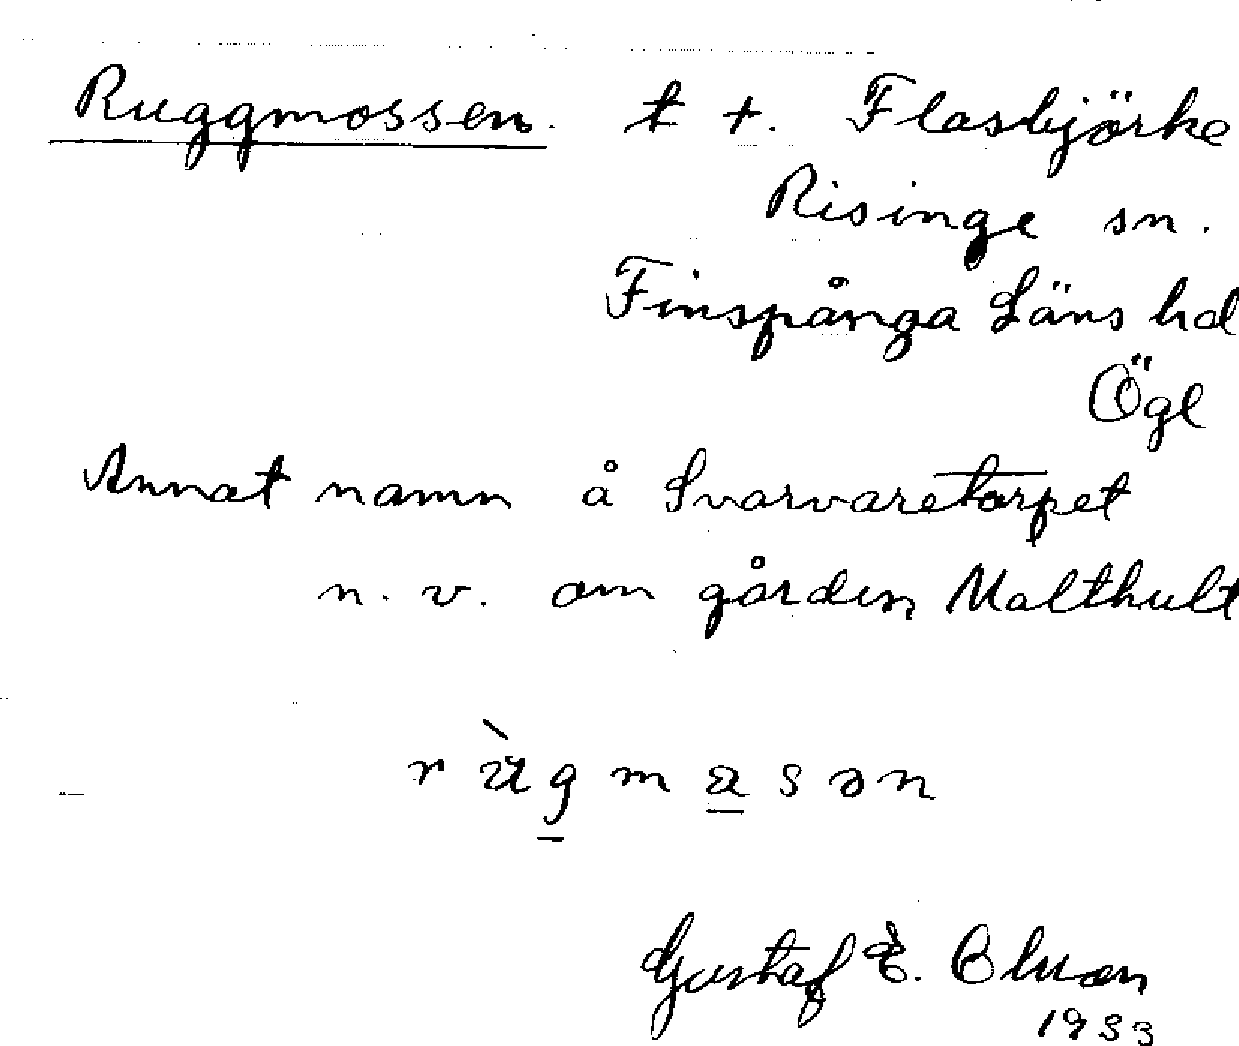 Ruggmossen. t +. Flasbjörke
Risinge sn.
Finspånga Läns hd
Ögl
Annat namn å Svarvaretorpet
n. v. om gården Malthult
Gustaf E.
1933